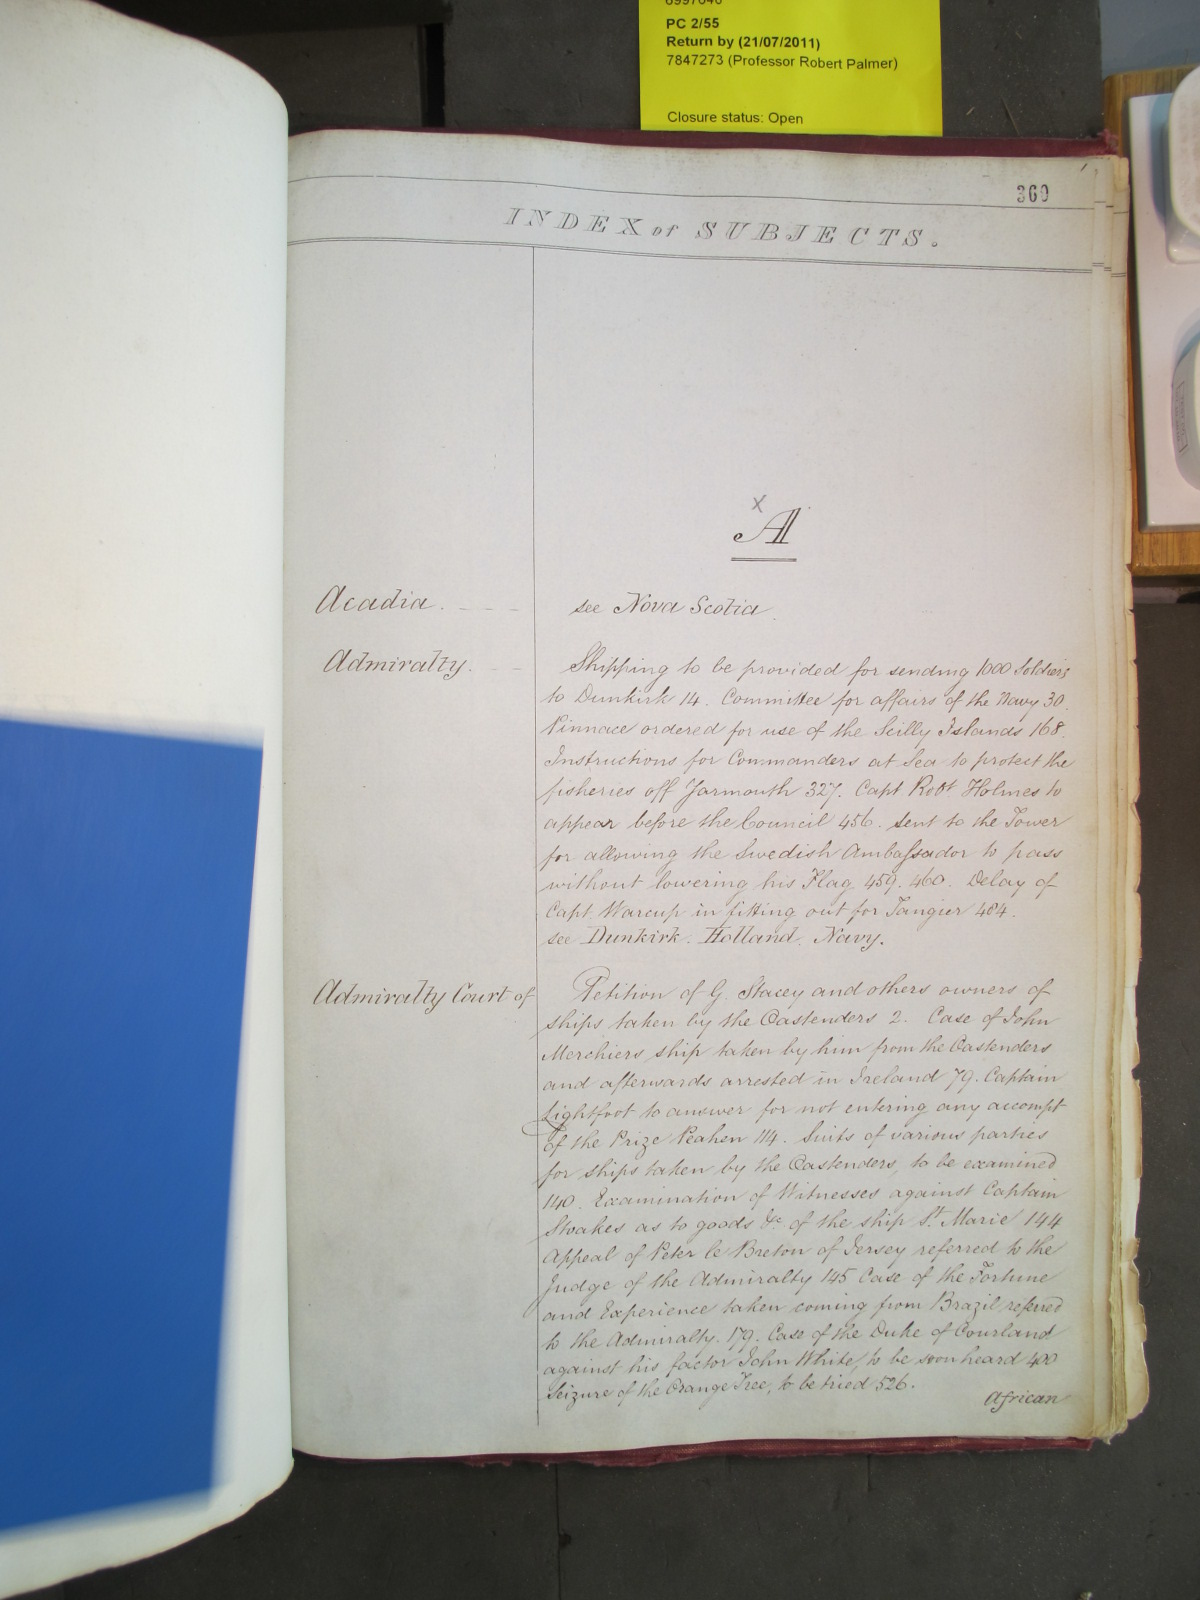 PC 2/55
Return by (21/07/2011)
7847273 (Professor Robert Palmer)
Closure status: Open
360
INDEX of SUBJECTS.
x
A
Acadia. see Nova Scotia.
Admiralty. Shipping to be provided for sending 1000 Soldiers
to Dunkirk 14. Committee for affairs of the Navy 30.
Pinnace ordered for use of the Scilly Islands 168.
Instructions for Commanders at Sea to protect the
fisheries off Yarmouth 327. Capt Robt Holmes to
appear before the Council 456. sent to the Tower
for allowing the Swedish Ambassador to pass
without lowering his Flag 459. 460. Delay of
Capt. Warcup in fitting out for Tangier 484.
see Dunkirk. Holland. Navy.
Admiralty Court of Petition of G. Stacey and others owners of
ships taken by the Oastenders 2. Case of John
Merchiers ship taken by him from the Oastenders
and afterwards arrested in Ireland 79. Captain
Lightfoot to answer for not entering any accompt
of the Prize Peahen 114. Suits of various parties
for ships taken by the Oastenders, to be examined
140. Examination of Witnesses against Captain
Stoakes as to goods &c. of the ship St. Marie 144
Appeal of Peter le Breton of Jersey referred to the
Judge of the Admiralty 145 Case of the Fortune
and Experience taken coming from Brazil referred
to the Admiralty. 179. Case of the Duke of Courland
against his factor John White, to be soon heard 400
Seizure of the Orange Tree, to be tried 526.
African